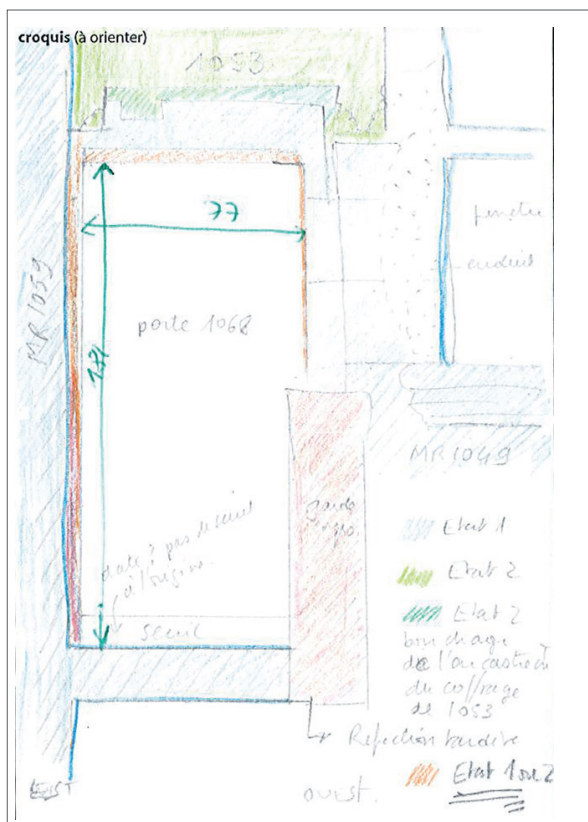 croquis (à orienter)
1053
77
fenêtre
enduit
MR 1059
porte 1068
181
MR 1049
garde
corps.
Etat 1
date ? pas de seuil
à l'origine.
Etat 2
seuil
Etat 2
bouchage
de l'encastremt
du coffrage
de 1053
Refection tardive
Etat 1 ou 2
EST
ouest.